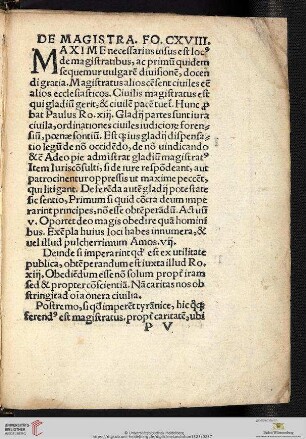 DE MAGISTRA. FO. CXVIII.
MAXIME necessarius usus est locꝰ
de magistratibus, ac primũ quidem
sequemur vulgarẽ divisionẽ, docen
di gratia. Magistratus alios cẽsent civiles &
alios ecclesiasticos. Civilis magistratus est
qui gladiũ gerit, & civilẽ pacẽ tuet̃. Hunc ꝓ
bat Paulus Ro. xiij. Gladij partes sunt iura
civila, ordinationes civiles iudiciorũ foren=
siũ, pœnæ sontiũ. Est qꝫ ius gladij dispensa=
tio legũ de nõ occidẽdo, de nõ vindicando
& c̃ Adeo pie admĩstrat gladiũ magistratꝰ
Item Iuriscõsulti, si de iure respõdeant, aut
patrocinentur oppressis ut maxime peccẽt,
qui litigant. De ferẽda autẽ gladij potestate
sic sentio, Primum si quid cõtra deum impe
rarint principes, nõ esse obtẽperãdũ. Act iſſ
v. Oportet deo magis obedire quã homini
bus. Exẽpla huius loci habes innumera, &
vel illud pulcherrimum Amos. vij.
Deinde si imperarint qđ est ex utilitate
publica, obtẽperandum est iuxta illud Ro.
xiij. Obediẽdum esse nõ solum propt̃ iram
sed & propter cõscientiã. Nã caritas nos ob
stringit ad oĩa onera civilia.
Postremo, si qđ imperẽt tyrãnice, hic qqꝫ
ferendꝰ est magistratus, propt̃ caritatẽ, ubi
P V
UNIVERSITÄTS-
BIBLIOTHEK
HEIDELBERG
© Universitätsbibliothek Heidelberg